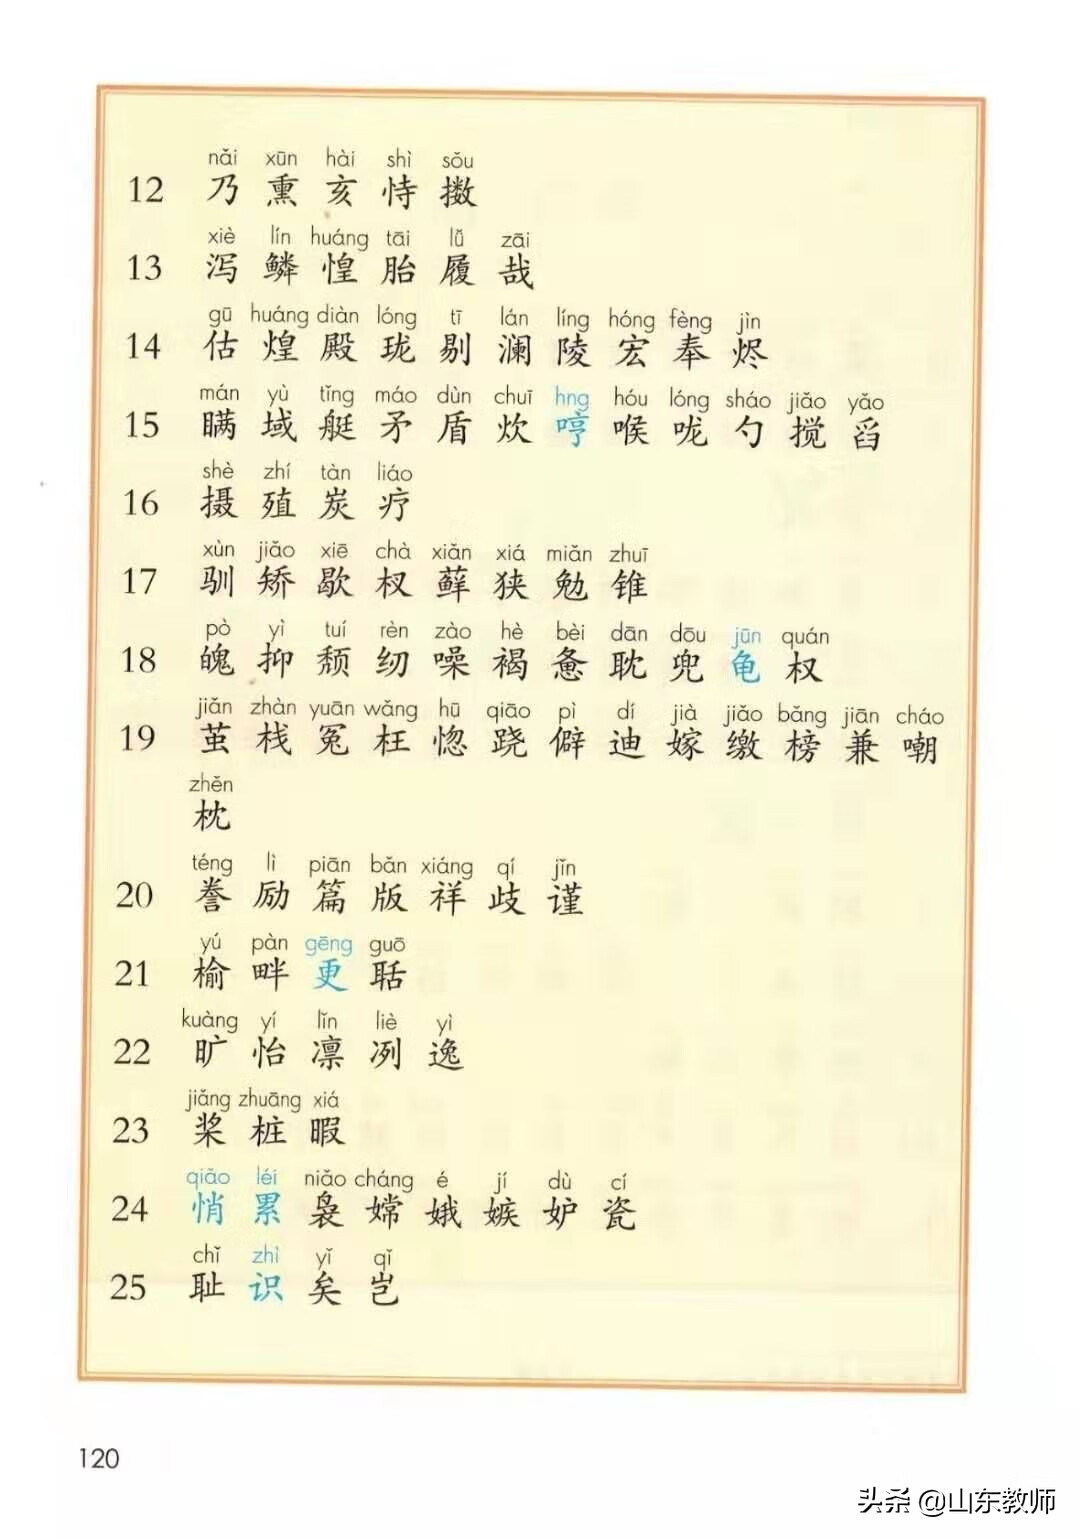 nǎi xūn hài shì sǒu
12 乃 熏 亥 恃 擞
xiè lín huáng tāi lǚ zāi
13 泻 鳞 惶 胎 履 哉
gū huáng diàn lóng tī lán líng hóng fèng jìn
14 估 煌 殿 珑 剔 澜 陵 宏 奉 烬
mán yù tǐng máo dùn chuī hng hóu lóng sháo jiǎo yǎo
15 瞒 域 艇 矛 盾 炊 哼 喉 咙 勺 搅 舀
shè zhí tàn liáo
16 摄 殖 炭 疗
xùn jiǎo xiē chà xiǎn xiá miǎn zhuī
17 驯 矫 歇 杈 藓 狭 勉 锥
pò yì tuí rèn zào hè bèi dān dōu jūn quán
18 魄 抑 颓 纫 噪 褐 惫 耽 兜 龟 权
jiǎn zhàn yuān wǎng hū qiāo pì dí jià jiǎo bǎng jiān cháo
19 茧 栈 冤 枉 惚 跷 僻 迪 嫁 缴 榜 兼 嘲
zhěn
枕
téng lì piān bǎn xiáng qí jǐn
20 誊 励 篇 版 祥 歧 谨
yú pàn gēng guō
21 榆 畔 更 聒
kuàng yí lǐn liè yì
22 旷 怡 凛 冽 逸
jiǎng zhuāng xiá
23 桨 桩 暇
qiǎo léi niǎo cháng é jí dù cí
24 悄 累 袅 嫦 娥 嫉 妒 瓷
chǐ zhì yǐ qǐ
25 耻 识 矣 岂
120
头条 @山东教师